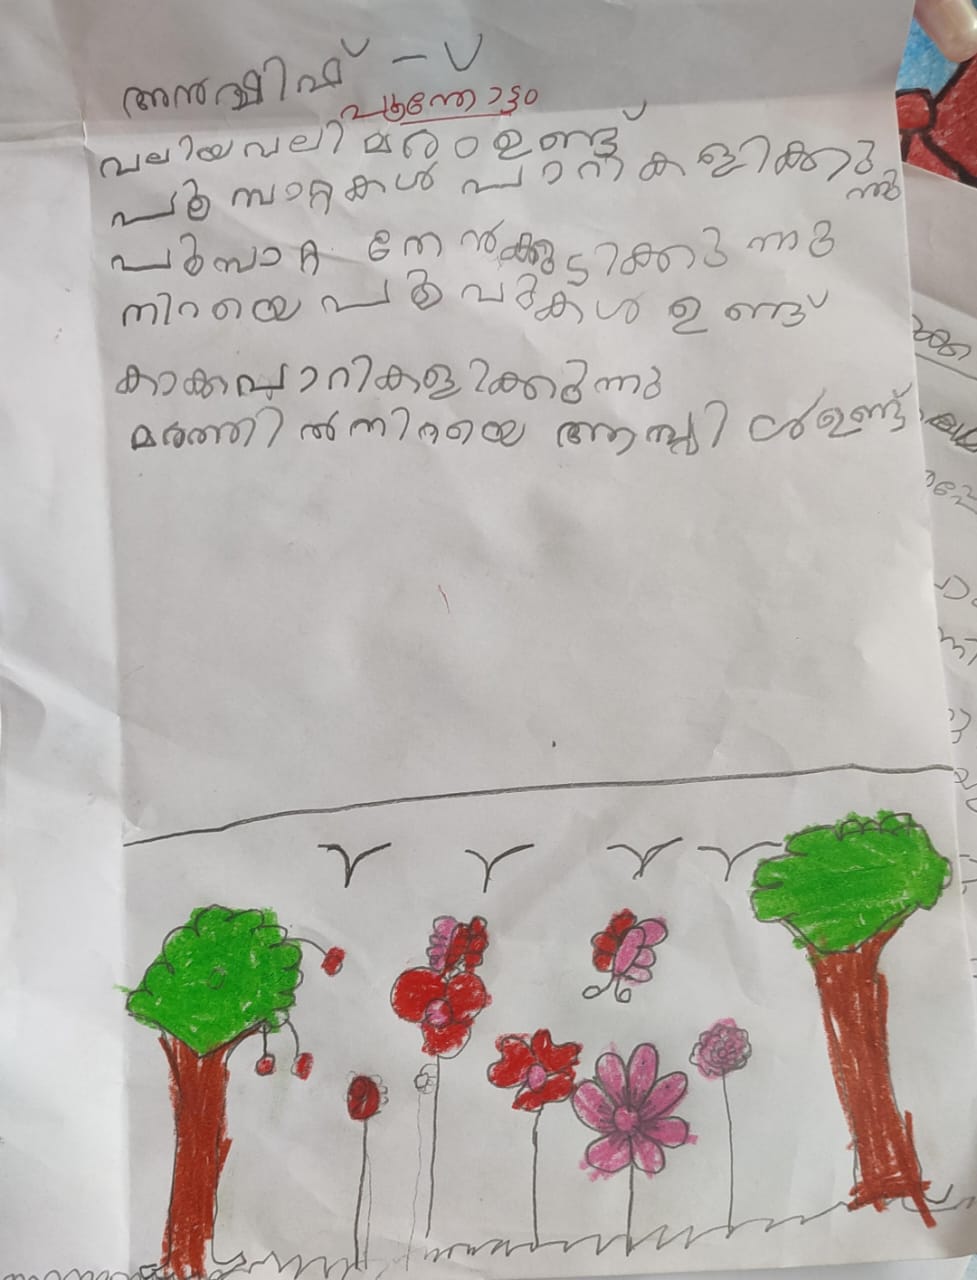 അൻഷിഫ് - V
പൂന്തോട്ടം
വലിയവലി മരംഉണ്ട്
പൂമ്പാറ്റകൾ പാറി കളിക്കു
ന്നു
പൂമ്പാറ്റ തേൻക്കുടിക്കുന്നു
നിറയെ പൂവുകൾ ഉണ്ട്
കാക്കപ്പാറികളിക്കുന്നു
മരത്തിൽനിറയെ ആപ്പിൾഉണ്ട്